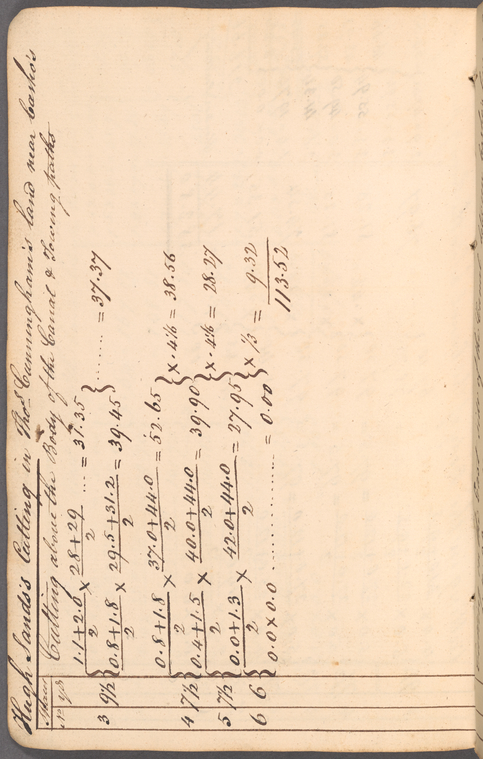 Hugh Sands's Cutting in Thos. Cunningham's land near Casho's
No. yds Cutting above the Body of the Canal & Towing paths
1.1+2.0/2 × 28+29/2 ... = 31.35
3 9½ 0.8+1.8/2 × 29.5+31.2/2 = 39.45 } ........ = 37.37
0.8+1.8/2 × 37.0+44.0/2 = 52.65
4 7½ 0.4+1.5/2 × 40.0+44.0/2 = 39.90 } × .4⅙ = 38.56
5 7½ 0.0+1.3/2 × 42.0+44.0/2 = 27.95 } × .4⅙ = 28.27
6 6 0.0×0.0 .............. = 0.00 } × ⅓ = 9.32
113.52